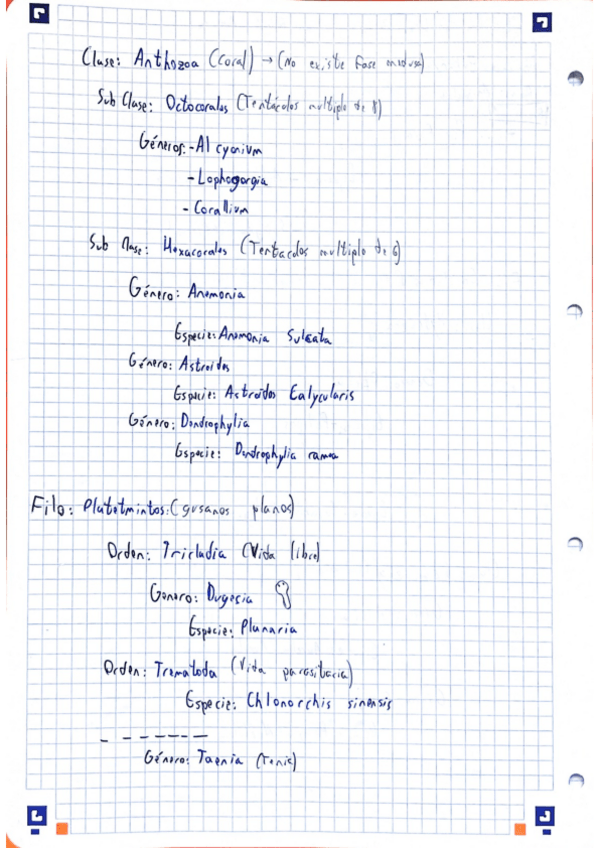 Clase: Anthozoa (Coral) → (No existe fase medusa)
Sub Clase: Octocorales (Tentáculos multiplo de 8)
Géneros: - Alcyonium
- Lophogorgia
- Corallium
Sub Clase: Hexacorales (Tentaculos multiplo de 6)
Género: Anemonia
Especie: Anemonia Sulcata
Género: Astroides
Especie: Astroides Calycularis
Género: Dendrophylia
Especie: Dendrophylia ramea
Filo: Platelmintos: (gusanos planos)
Orden: Tricladia (Vida libre)
Genero: Dugesia
Especie: Planaria
Orden: Trematoda (Vida parasitaria)
Especie: Chlonorchis sinensis
Género: Taenia (Tenia)